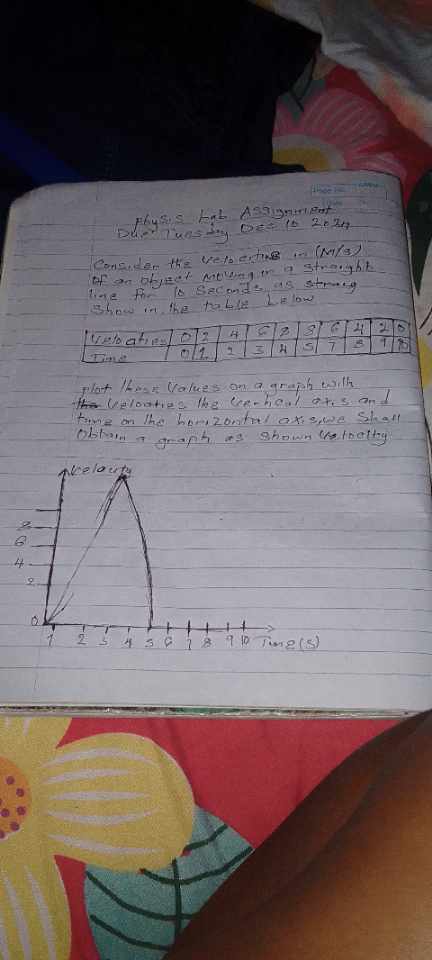 Physis Lab Assignment
Due Tuesday Dec 10 2024
Consider the velocities in (M/s)
Of an object Moving in a Straight
line for 10 Seconds, as straig
Show in the table below
Velocaties 0 2 4 6 8 8 6 4 2 0
Time 0 1 2 3 4 5 7 8 9 10
plot these Values on a graph with
Velocaties the Vertical axis and
time on the horizontal axis, we Shall
Obtain a graph as Shown Velocity
Velocity
8
6
4
2
0
1 2 3 4 5 6 7 8 9 10 Time(S)